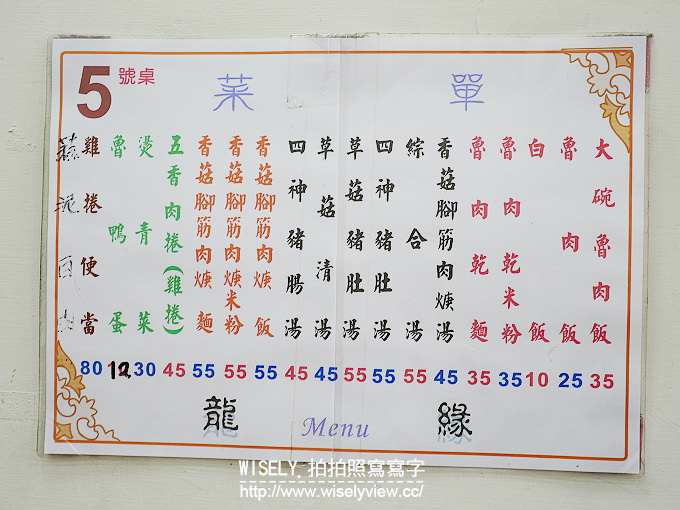 5號桌
菜單
大碗魯肉飯 35
魯肉飯 25
白飯 10
魯肉乾米粉 35
魯肉乾麵 35
香菇腳筋肉焿湯 45
綜合湯 55
四神豬肚湯 55
草菇豬肚湯 55
草菇清湯 45
四神豬腸湯 45
香菇腳筋肉焿飯 55
香菇腳筋肉焿米粉 55
香菇腳筋肉焿麵 55
五香肉捲(雞捲) 45
燙青菜 30
魯鴨蛋 12
雞捲便當 80
龍 Menu 緣
WISELY 拍拍照寫寫字
http://www.wiselyview.cc/